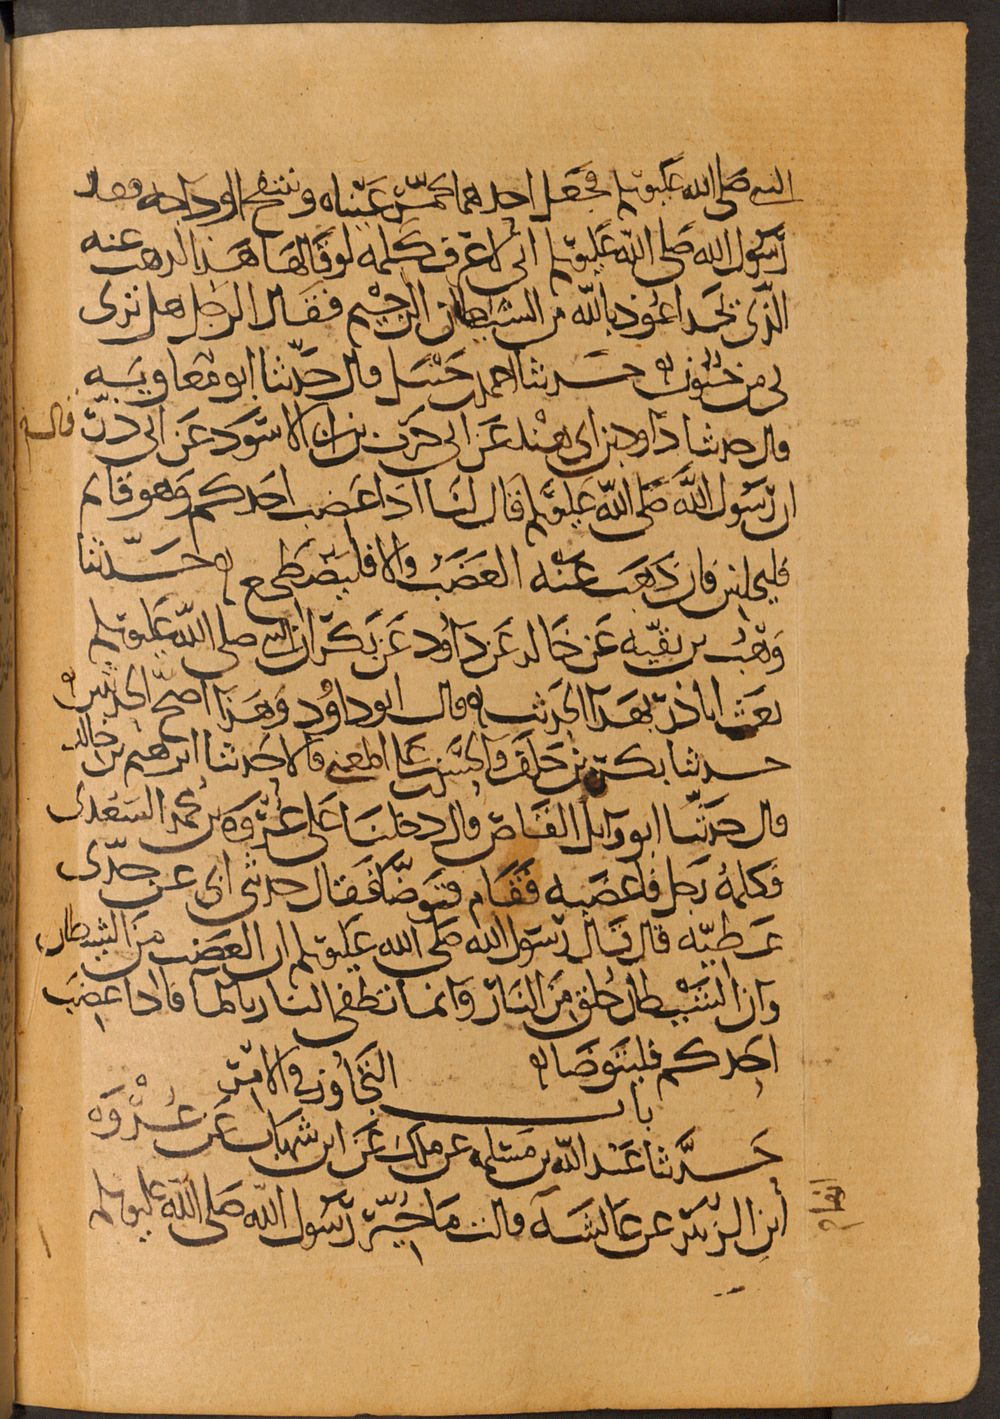 النبي صلى الله عليه وسلم فجعل احدهما تحمر عيناه وتنتفخ اوداجه فقال
رسول الله صلى الله عليه وسلم اني لاعرف كلمة لو قالها هذا لذهب عنه
الذي يجد اعوذ بالله من الشيطان الرجيم فقال الرجل هل ترى
بي من جنون ه حدثنا احمد بن حنبل قال حدثنا ابو معاوية
قال حدثنا داود بن ابي هند عن ابي حرب بن ابي الاسود عن ابي ذر قال
ان رسول الله صلى الله عليه وسلم قال لنا اذا غضب احدكم وهو قائم
فليجلس فان ذهب عنه الغضب والا فليضطجع ه حدثنا
وهب بن بقية عن خالد عن داود عن بكر ان النبي صلى الله عليه وسلم
بعث ابا ذر بهذا الحديث ه قال ابو داود وهذا اصح الحديثين ه
حدثنا بكر بن خلف والحسن بن علي المعنى قالا حدثنا ابرهيم بن خالد
قال حدثنا ابو وايل القاص قال دخلنا على عروة بن محمد السعدي
فكلمه رجل فاغضبه فقام فتوضا فقال حدثني ابي عن جدي
عطية قال قال رسول الله صلى الله عليه وسلم ان الغضب من الشيطان
وان الشيطان خلق من النار وانما تطفى النار بالما فاذا غضب
احدكم فليتوضا ه
باب التجاوز في الامر
حدثنا عبد الله بن مسلمة عن ملك عن ابن شهاب عن عروة
ابن الزبير عن عائشة قالت ما خير رسول الله صلى الله عليه وسلم